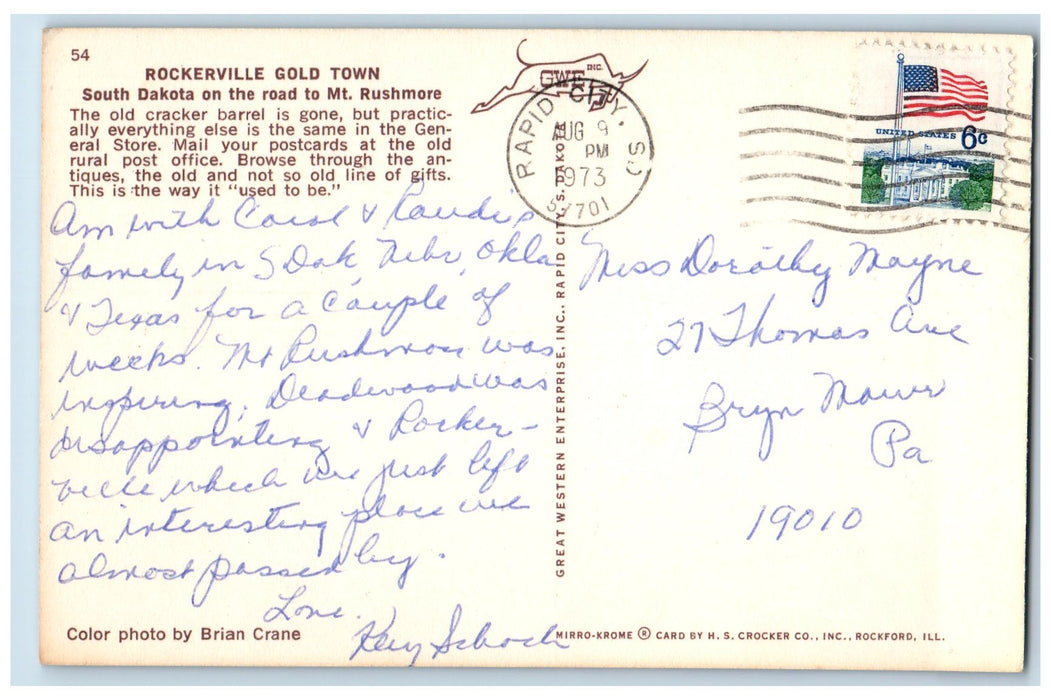 54
ROCKERVILLE GOLD TOWN
South Dakota on the road to Mt. Rushmore
The old cracker barrel is gone, but practic-
ally everything else is the same in the Gen-
eral Store. Mail your postcards at the old
rural post office. Browse through the an-
tiques, the old and not so old line of gifts.
This is the way it "used to be."
Am with Carol & Randy's
family in S Dak, Nebr, Okla
& Texas for a couple of
weeks. Mt Rushmore was
inspiring, Deadwood was
disappointing & Rocker-
ville which we just left
an interesting place we
almost passed by.
Love.
Kay Schoch
Color photo by Brian Crane
GWE INC.
GREAT WESTERN ENTERPRISE, INC., RAPID CITY, S. DAKOTA
RAPID CITY, SD
AUG 9
PM
1973
57701
UNITED STATES 6c
Miss Dorothy Mayne
27 Thomas Ave
Bryn Mawr
Pa
19010
MIRRO-KROME ® CARD BY H. S. CROCKER CO., INC., ROCKFORD, ILL.